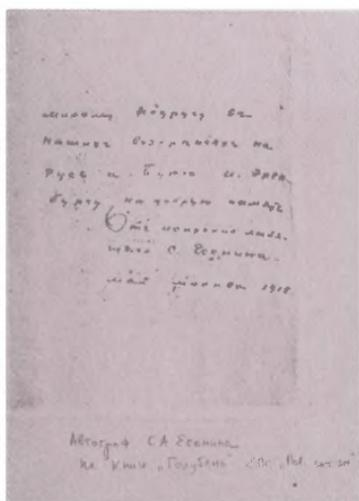 милому недругу въ
нашихъ воззрѣніяхъ на
Русь и Бурю И. Эрен
бургу, на добрую память
Отъ искренно любя-
щаго С. Есенина.
май Москва 1918
Автограф С.А. Есенина
на книге „Голубень"